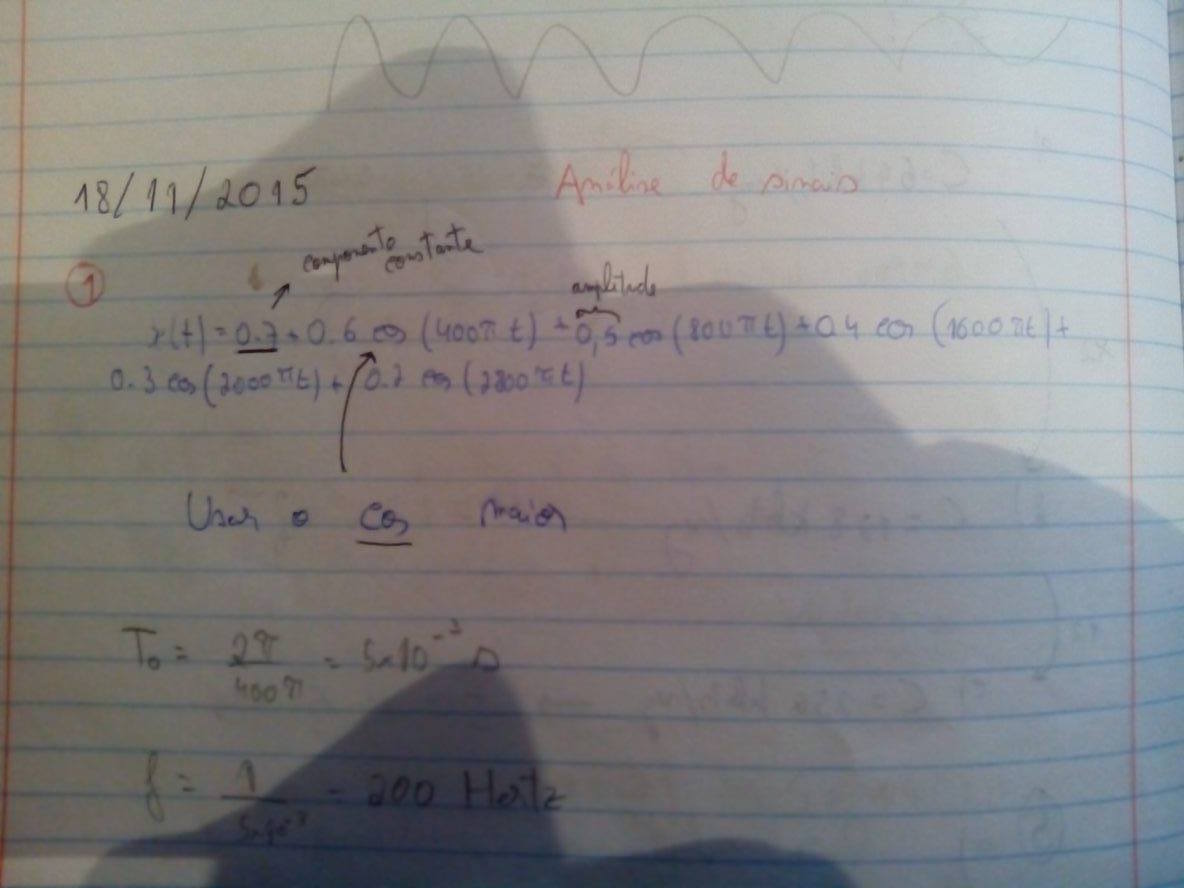 18/11/2015 Análise de sinais
componente constante
amplitude
1
x(t) = 0.7 + 0.6 cos (400πt) + 0,5 cos (800πt) + 0.4 cos (1600πt) +
0.3 cos (2000πt) + 0.2 cos (2800πt)
Usar o cos maior
T₀ = 2π/400π = 5x10⁻³ s
f = 1/5x10⁻³ = 200 Hertz